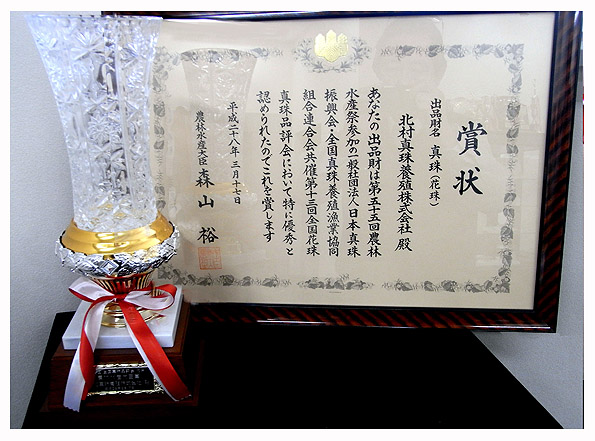 賞状
出品財名 真珠(花珠)
北村真珠養殖株式会社 殿
あなたの出品財は第五十五回農林
水産祭参加の一般社団法人日本真珠
振興会・全国真珠養殖漁業協同
組合連合会共催第十三回全国花珠
真珠品評会において特に優秀と
認められたのでこれを賞します
平成二十八年三月十七日
農林水産大臣 森山 裕